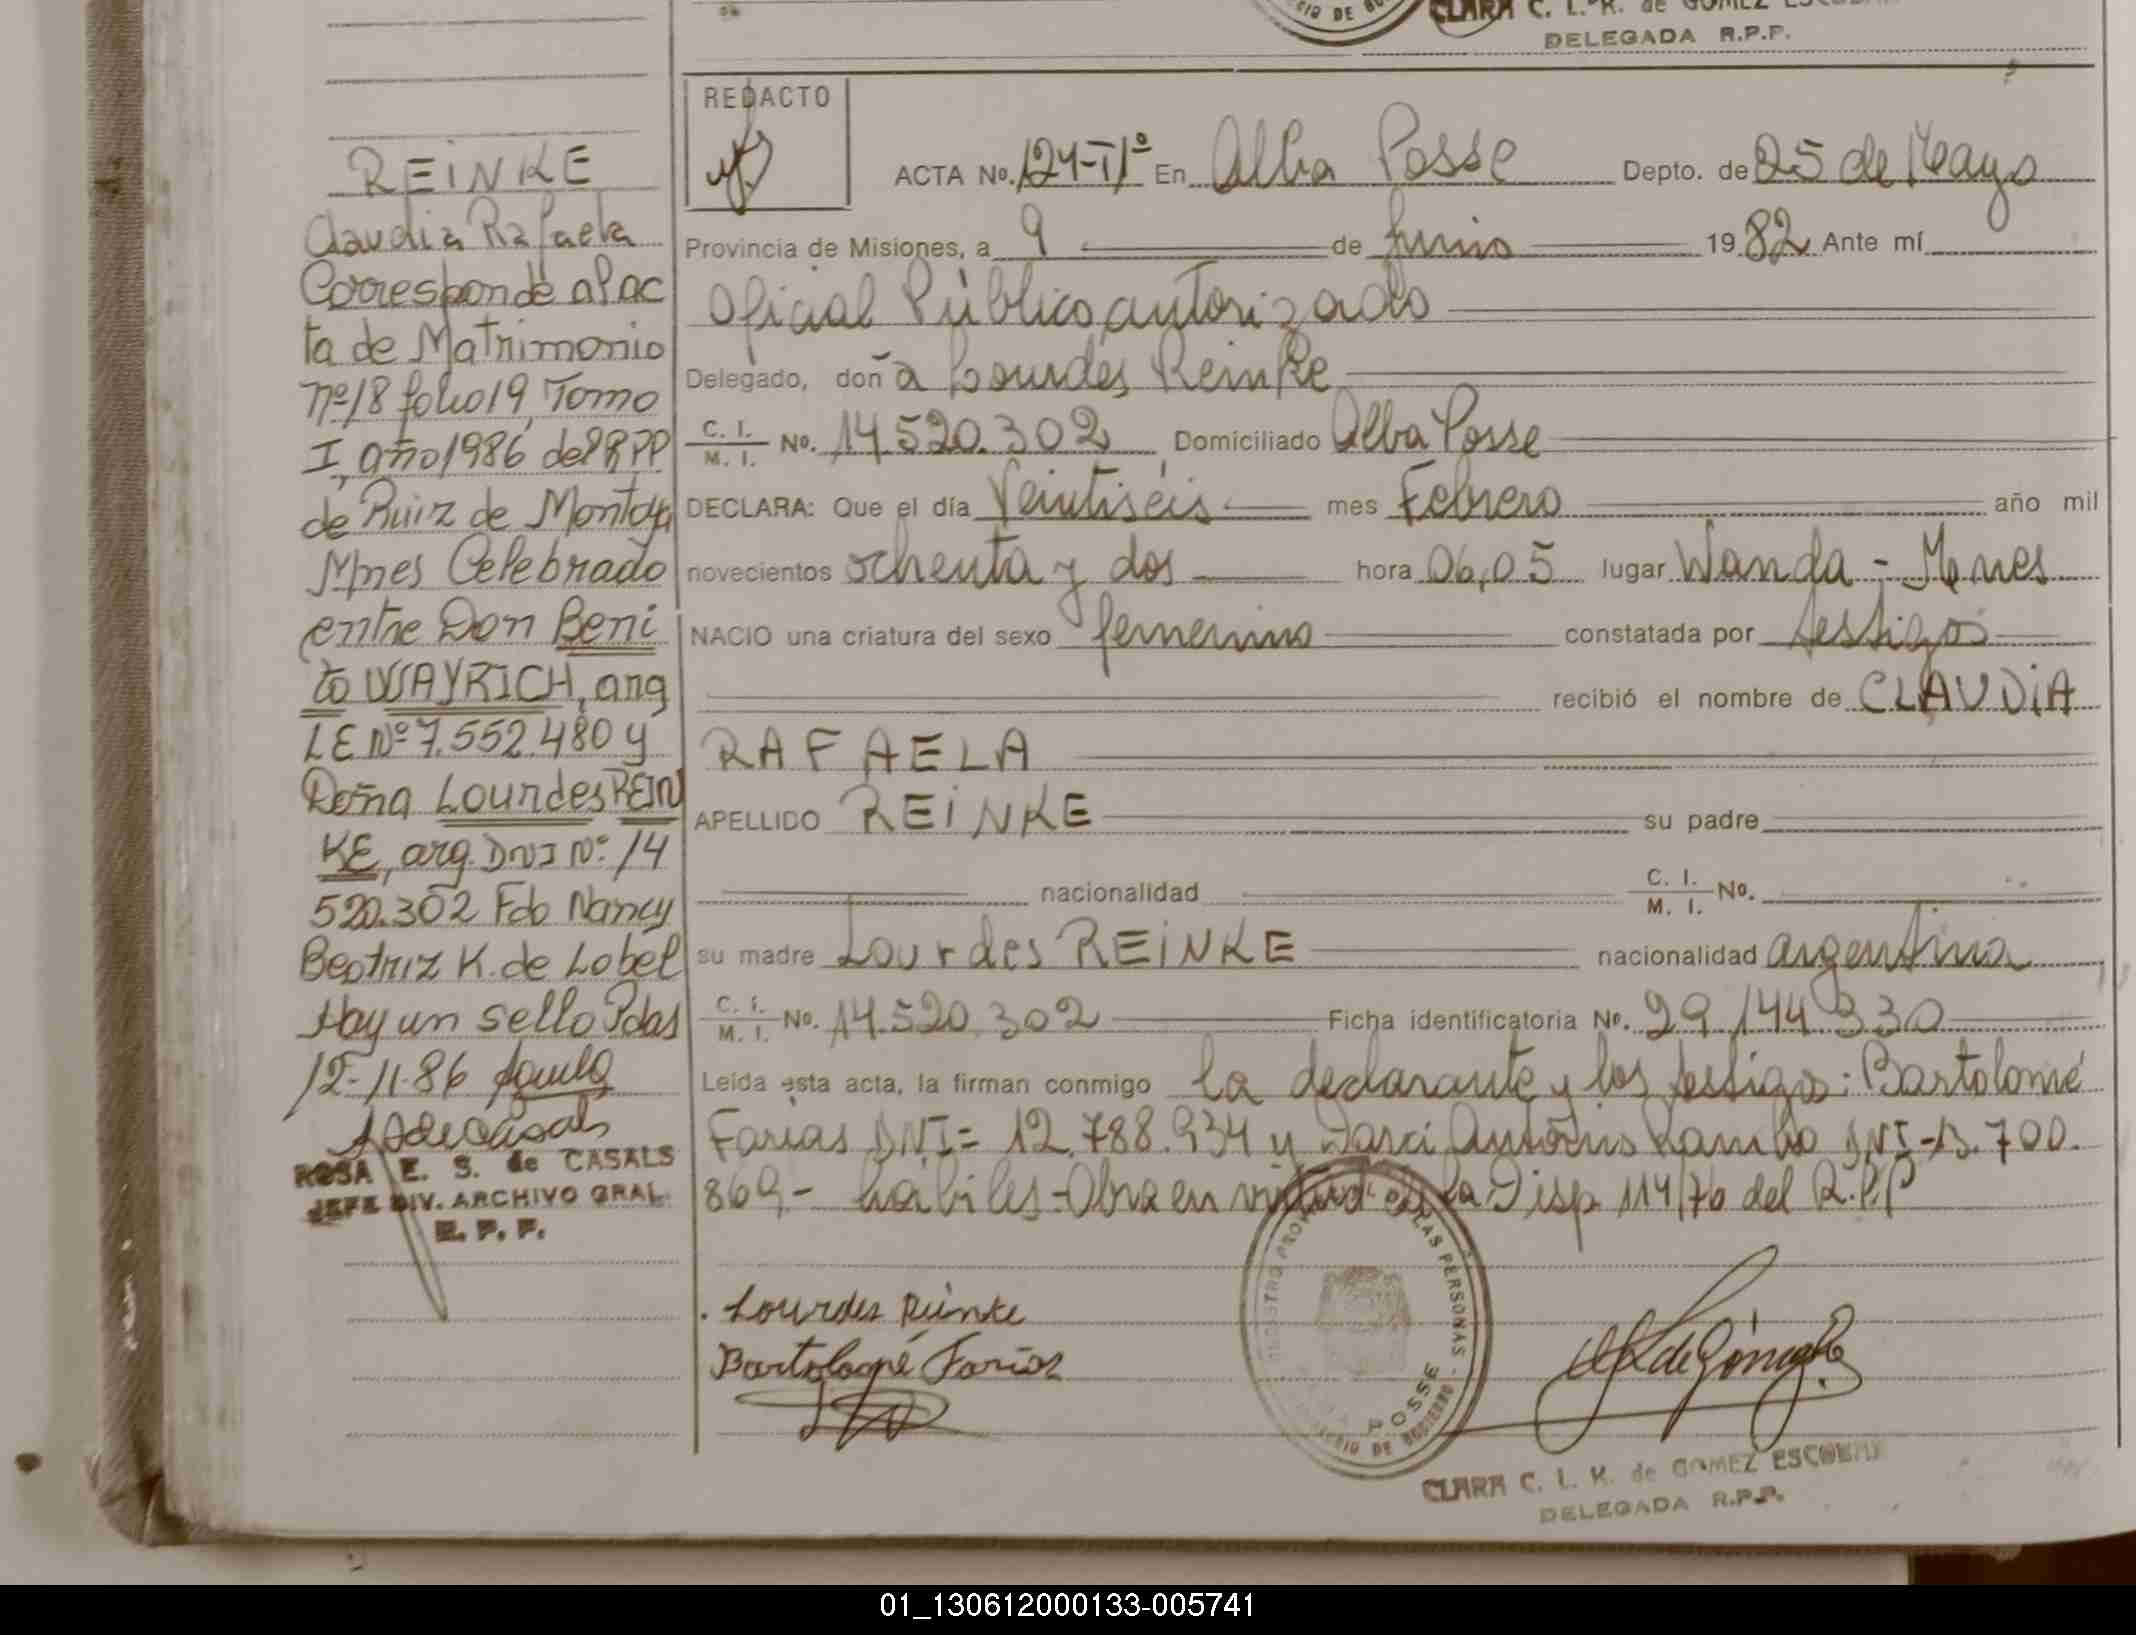 CLARA C. L. K. de GOMEZ
DELEGADA R.P.P.
REDACTO
ACTA No. 124-Tº1º En Alba Posse Depto. de 25 de Mayo
Provincia de Misiones, a 9 de junio 1982 Ante mí
Oficial Público autorizado
Delegado, doña Lourdes Reinke
C. I. / M. I. No. 14.520.302 Domiciliado Alba Posse
DECLARA: Que el día Veintiséis mes Febrero año mil
novecientos ochenta y dos hora 06,05 lugar Wanda - Mnes
NACIO una criatura del sexo femenino constatada por testigos
recibió el nombre de CLAUDIA
RAFAELA
APELLIDO REINKE su padre
nacionalidad C. I. / M. I. No.
su madre Lourdes REINKE nacionalidad argentina
C. I. / M. I. No. 14.520.302 Ficha identificatoria No. 29.144.330
Leída esta acta, la firman conmigo la declarante y los testigos: Bartolomé
Farias DNI= 12.788.934 y Darci Antonio Rambo DNI-13.700.
869,- hábiles-Obra en virtud a la Disp 114/76 del R.P.P
Lourdes Reinke
Bartolomé Farias
POSSE
CLARA C. L. K. de GOMEZ ESCOBAR
DELEGADA R.P.P.
REINKE
Claudia Rafaela
Corresponde al ac
ta de Matrimonio
nº18 folio 19, Tomo
I, año 1986 del RPP
de Ruiz de Montoya
Mnes Celebrado
entre Don Beni
to WAYRICH, arg
LE Nº 7.552.480 y
Doña Lourdes REIN
KE, arg. DNI Nº 14
520.302 Fdo Nancy
Beatriz K. de Lobel
Hay un sello Pdas
12-11-86
ROSA E. S. de CASALS
JEFE DIV. ARCHIVO GRAL.
R. P. P.
01_130612000133-005741